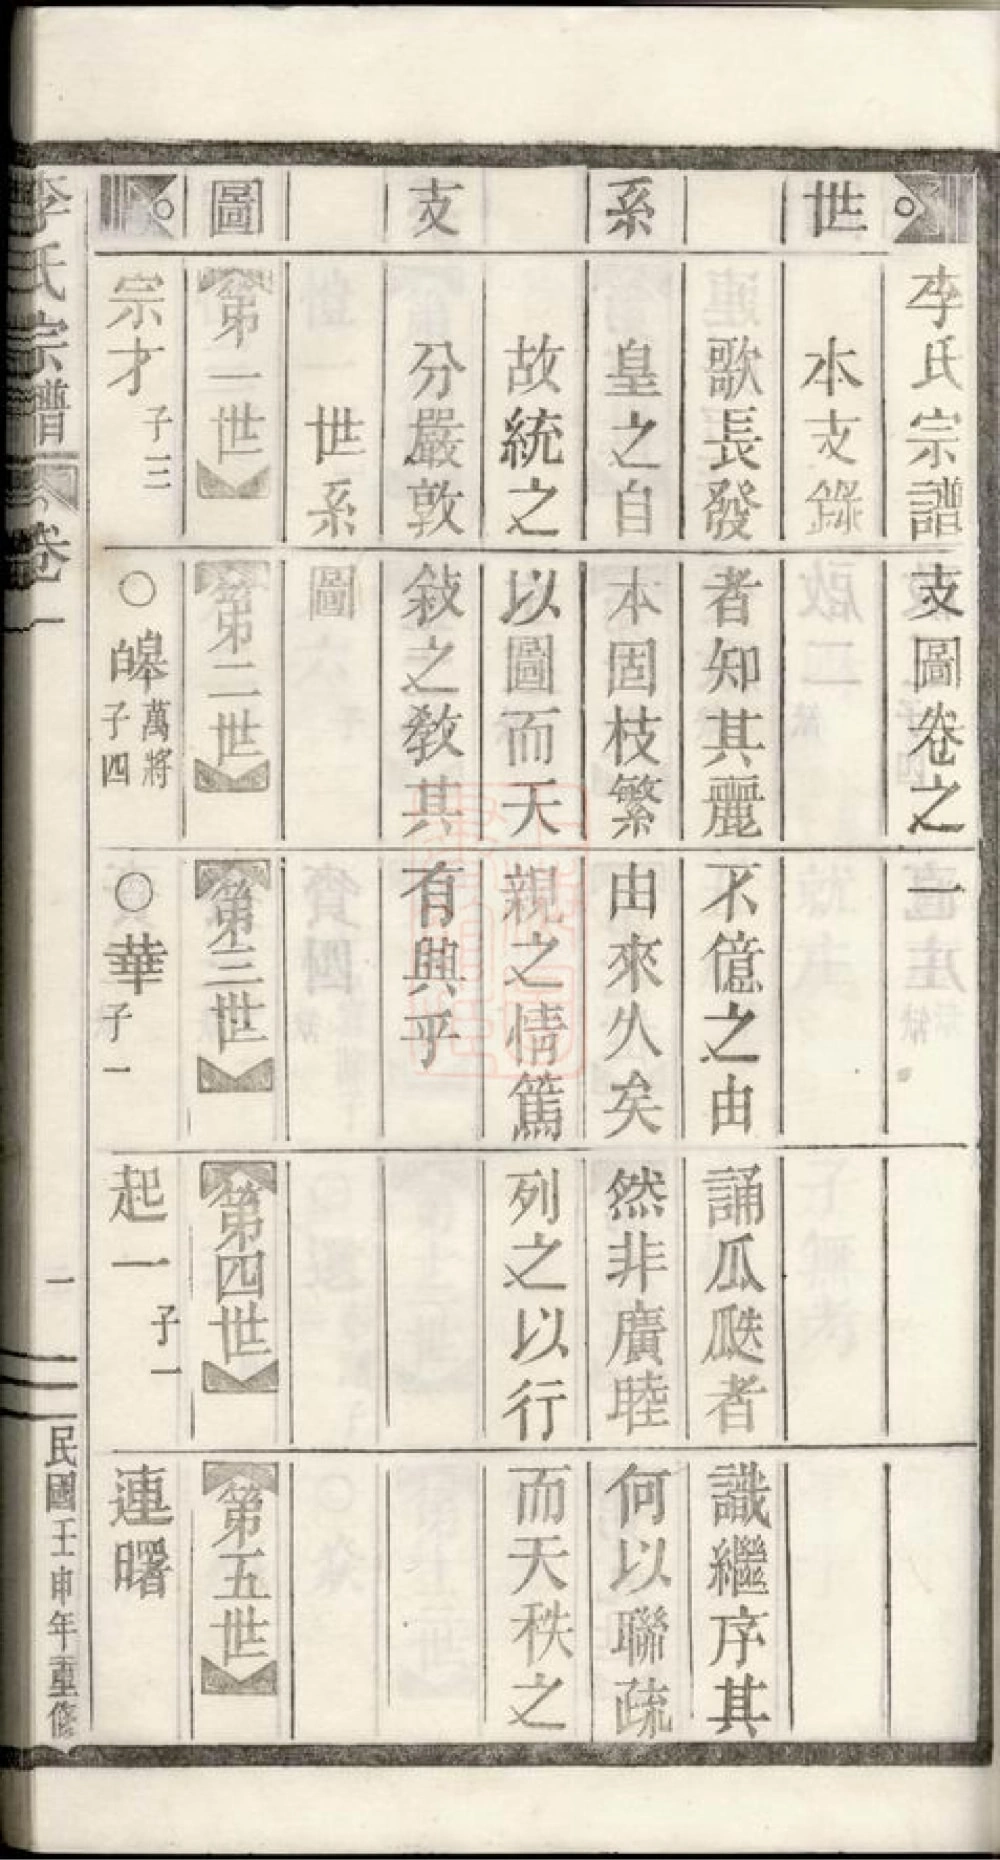 世系支圖
李氏宗譜支圖卷之一
本支錄
歌長發者知其麗不億之由誦瓜瓞者識繼序其
皇之自本固枝繁由來久矣然非廣睦何以聯疏
故統之以圖而天親之情篤列之以行而天秩之
分嚴敦敍之教其有興乎
世系圖
第一世 第二世 第三世 第四世 第五世
宗才 子三 ○皞 萬將 子四 ○華 子一 起一 子一 連曙
李氏宗譜 卷一 一 民國壬申年重修